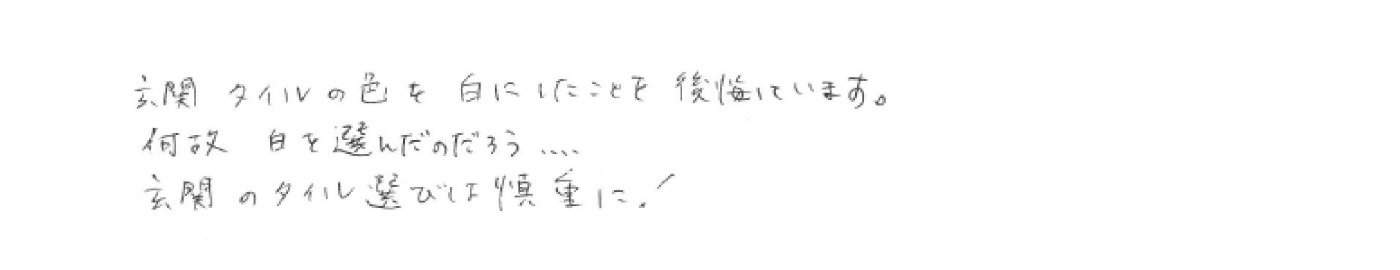 玄関 タイルの色を 白にしたことを 後悔しています。
何故 白を選んだのだろう....
玄関のタイル選びは慎重に!